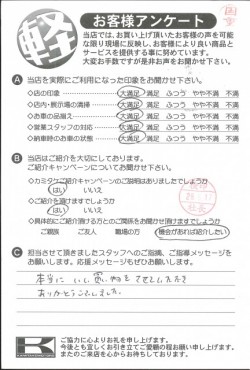 軽
お客様アンケート
当店では、お買い上げ頂いたお客様の声を可能
な限り現場に反映し、お客様により良い商品と
サービスを提供する事に努めています。
大変お手数ですが是非お声をお聞かせ下さい。
A 当店を実際にご利用になった印象をお聞かせ下さい。
◇店の印象 大満足 満足 ふつう やや不満 不満
◇店内・展示場の清掃 大満足 満足 ふつう やや不満 不満
◇お車の品揃え 大満足 満足 ふつう やや不満 不満
◇営業スタッフの対応 大満足 満足 ふつう やや不満 不満
◇納車時のお車の状態 大満足 満足 ふつう やや不満 不満
B 当店はご紹介を大切にしております。
ご紹介キャンペーンについてお聞かせ下さい。
◇カミタケご紹介キャンペーンのご説明はありましたでしょうか
はい いいえ
◇ご紹介を頂けますでしょうか
はい いいえ
◇具体的にご紹介頂ける方とのご関係をお聞かせ頂けますでしょうか
ご親族 ご友人 職場の方 機会があれば紹介したい
C 担当させて頂きましたスタッフへのご指摘、ご指導メッセージを
お願いします。応援メッセージもぜひお願いします。
本当に いい買い物を させていただき
ありがとうございました。
K
ご協力に心よりお礼を申し上げます。
今後とも宜しくお引き立てご愛顧の程お願い申し上げます。
またのご来店を心からお待ちしております。